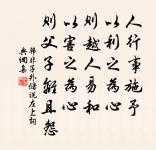 人行事施予
以利之為心
則越人易和
以害之為心
則父子離且怨
韓非子外儲說左上詞
典網集